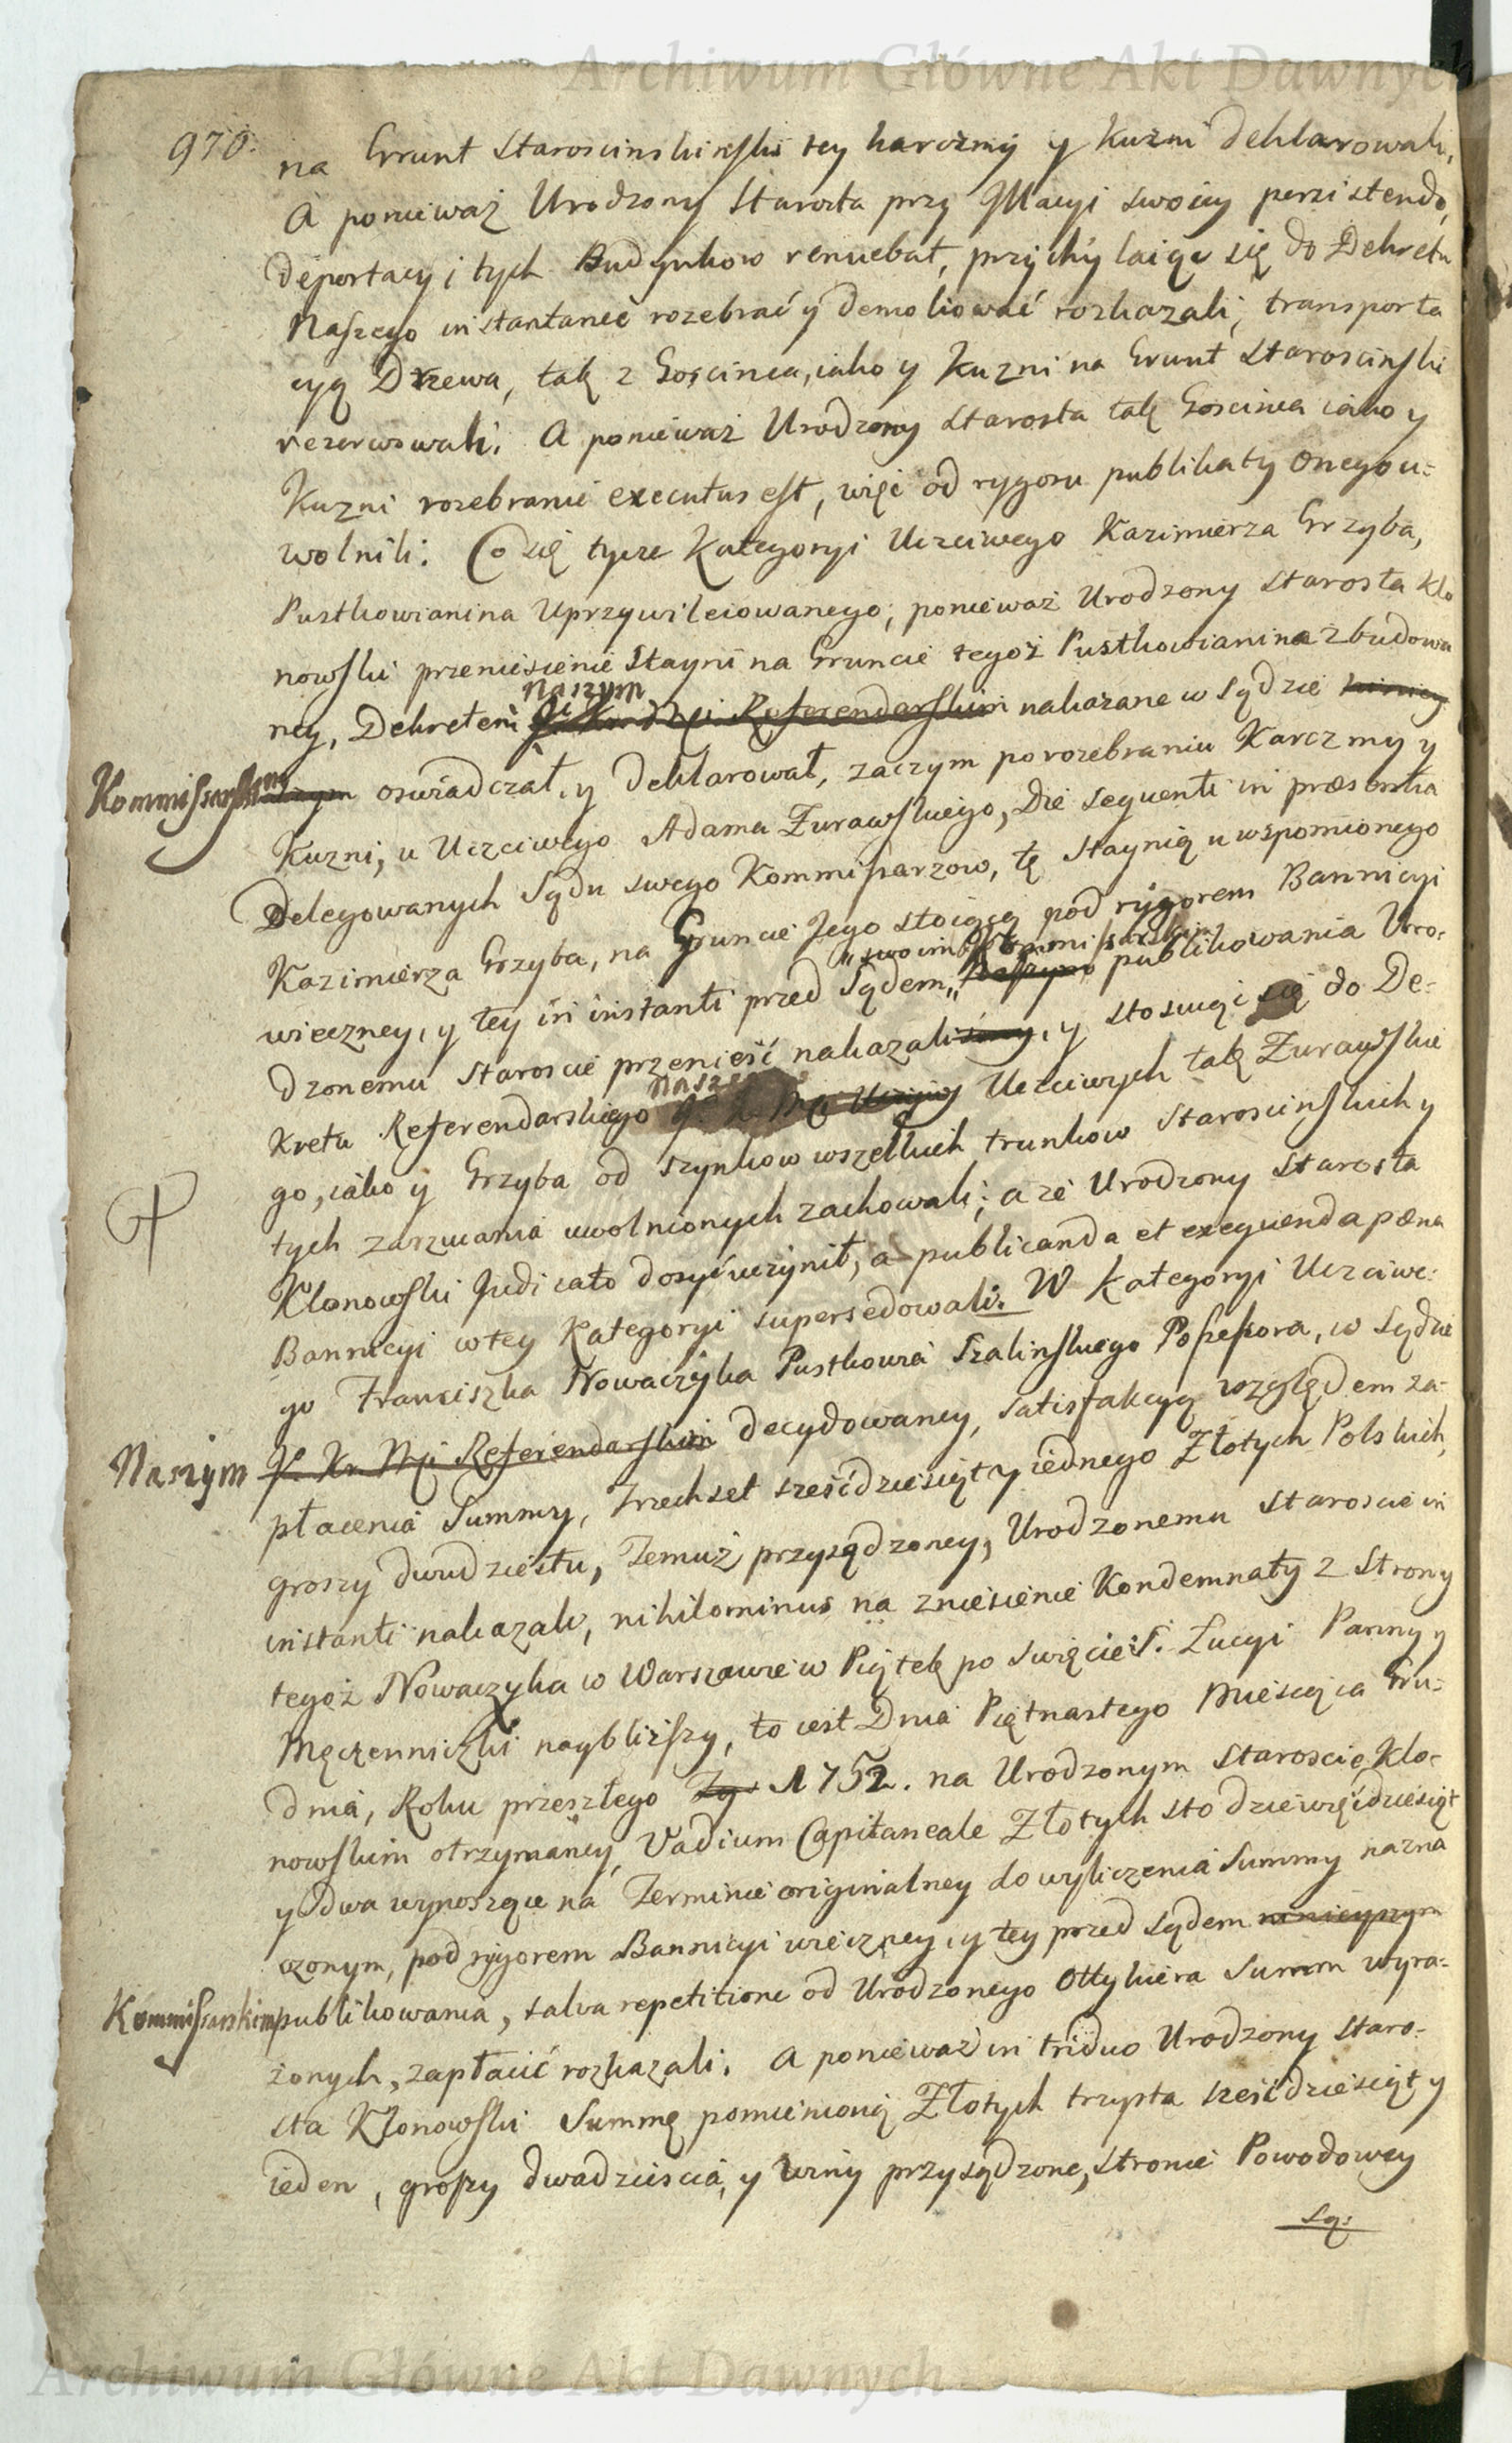 Archiwum Główne Akt Dawnych
970.
na Grunt Staroscinski tey karczmy y Kuzni deklarowali,
A ponieważ Urodzony Starosta przy Illacyi swoiey perzistendo,
deportacyi tych Budynkow renuebat, przychylaiąc się do Dekretu
Naszego instantanee rozebrać y demoliować rozkazali, transporta
cyą Drzewa, tak z Goscinca, iako y Kuzni na Grunt Staroscinski
rezerwowali. A ponieważ Urodzony Starosta tak Goscinca iako y
Kuzni rozebranie executus est, więc od rygoru publikaty onego u=
wolnili. Co się tycze Kategoryi Uczciwego Kazimierza Grzyba,
Pustkowianina Uprzywileiowanego, ponieważ Urodzony Starosta Klo
nowski przeniesienie Stayni na Gruncie tegoż Pustkowianina zbudowa
naszym
ney, Dekretem J. Kr. Mci Referendarskim nakazane w Sądzie
Kommissarskim oswiadczał, y deklarował, zaczym po rozebraniu Karczmy y
Kuzni, u Uczciwego Adama Zurawskiego, Die sequenti in præsentia
Delegowanych Sądu swego Kommissarzow, tę Staynią u wspomionego
Kazimierza Grzyba, na Gruncie Jego stoiącą pod rygorem Bannicyi
"swoim Kommissarskim
wieczney, y tey in instanti przed Sądem" Naszym publikowania Uro=
dzonemu Staroscie przenieść nakazali, y stosuiąc się do De=
naszego
kretu Referendarskiego J. K. Mci Uczciwych tak Zurawskie
go, iako y Grzyba od szynkow wszelkich trunkow Staroscinskich y
tych zaszwania uwolnionych zachowali; a że Urodzony Starosta
Klonowski Judicato dosyć uczynił, a publicanda et exequenda pæna
Bannicyi w tey Kategoryi supersedowali. W Kategoryi Uczciwe=
go Franciszka Nowaczyka Pustkowia Szalinskiego Possessora, w Sądzie
Naszym J. Kr. Mci Referendarskim decydowaney, satisfakcyą względem za=
płacenia Summy, Trzechset sześćdziesiąt y iednego Złotych Polskich,
groszy dwudziestu, Temuż przysądzoney, Urodzonemu Staroscie in
instanti nakazali, nihilominus na zniesienie Kondemnaty z Strony
tegoż Nowaczyka w Warszawie w Piątek po Swięcie S. Lucyi Panny y
Męczenniczki naybliższy, to iest Dnia Piętnastego Miesiąca Gru=
dnia, Roku przeszłego 1752. na Urodzonym Staroscie Klo=
nowskim otrzymaney, Vadium Capitaneale Złotych sto dziewięćdziesiąt
y dwa wynoszące na Terminie originalney do wyliczenia Summy nazna
czonym, pod rygorem Bannicyi wieczney, y tey przed Sądem ninieyszym
Kommissarskim publikowania, salva repetitione od Urodzonego Ottykiera Summ wyra=
żonych, zapłacić rozkazali. A ponieważ in triduo Urodzony Staro=
sta Klonowski Summę pomienioną Złotych trzysta sześćdziesiąt y
ieden, groszy dwadziescia, y winy przysądzone, stronie Powodowey
Są:
Archiwum Główne Akt Dawnych